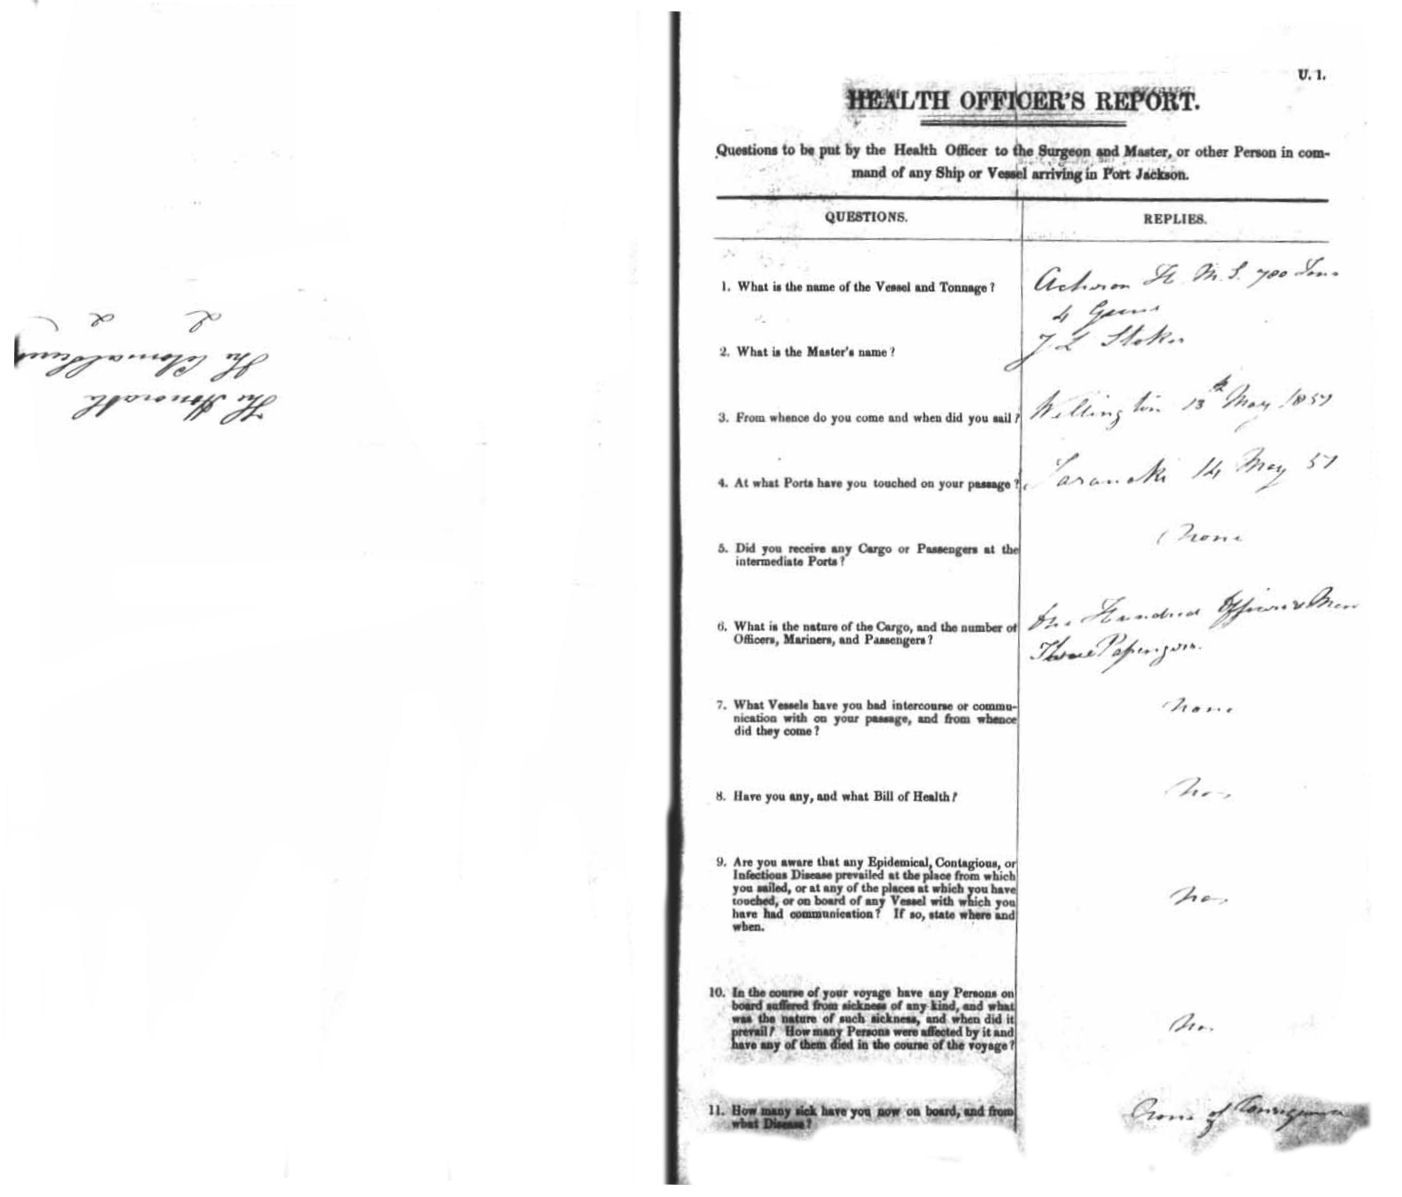 The Honorable
The Colonial Secretary
&c &c
U. 1.
HEALTH OFFICER'S REPORT.
Questions to be put by the Health Officer to the Surgeon and Master, or other Person in com-
mand of any Ship or Vessel arriving in Port Jackson.
QUESTIONS.
REPLIES.
1. What is the name of the Vessel and Tonnage?
Acheron H. M. S. 780 Tons
4 Guns
2. What is the Master's name?
J L Stokes
3. From whence do you come and when did you sail?
Wellington 13th May 1851
4. At what Ports have you touched on your passage?
Taranaki 14 May 51
5. Did you receive any Cargo or Passengers at the
intermediate Ports?
None
6. What is the nature of the Cargo, and the number of
Officers, Mariners, and Passengers?
One Hundred Officers & Men
Three Passengers.
7. What Vessels have you had intercourse or commu-
nication with on your passage, and from whence
did they come?
None
8. Have you any, and what Bill of Health?
No
9. Are you aware that any Epidemical, Contagious, or
Infectious Disease prevailed at the place from which
you sailed, or at any of the places at which you have
touched, or on board of any Vessel with which you
have had communication? If so, state where and
when.
No
10. In the course of your voyage have any Persons on
board suffered from sickness of any kind, and what
was the nature of such sickness, and when did it
prevail? How many Persons were affected by it and
have any of them died in the course of the voyage?
No.
11. How many sick have you now on board, and from
what Disease?
None of Consequence